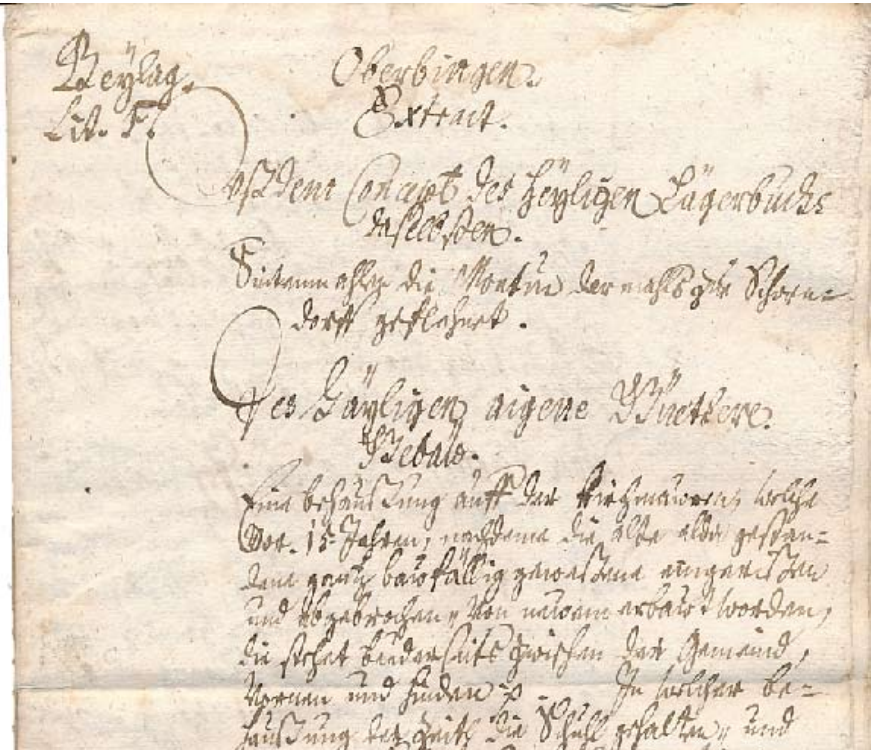 Beylag.
Lit. F.
Oberbingen.
Extract.
Auß dem Concept des Heyligen Lägerbuchs
daselbsten.
Sintemahlen die dermahls zue Schorn=
dorff geflehnet.
Des Häyligen aigene Güettere.
Gebäw.
Eine behaußung auff der Kirchmauren, welche
vor 15 Jahren, nachdeme die alte alda gestan=
dene gantz bawfällig geweßene eingerißen
und abgebrochen, von newem erbawt worden,
die stehet beederseits zwischen der Gemeind,
vornen und hinden In welcher be=
haußung der Zeit die Schull gehalten, und